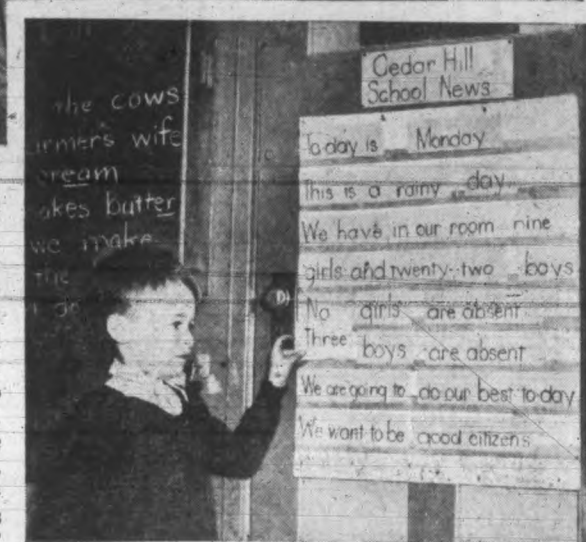 the cows
armer's wife
cream
akes butter
we make
the
Cedar Hill
School News
To day is Monday
This is a rainy day
We have in our room nine
girls and twenty-two boys
No girls are absent
Three boys are absent
We are going to do our best to-day
We want to be good citizens